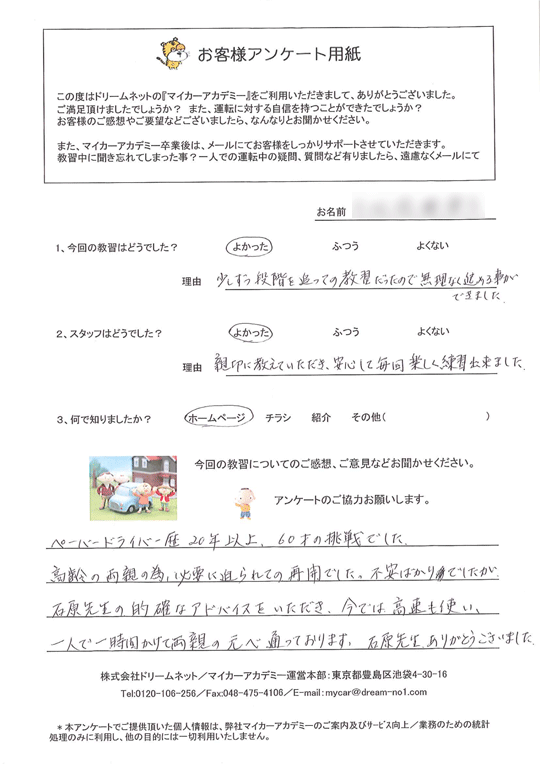 お客様アンケート用紙
この度はドリームネットの『マイカーアカデミー』をご利用いただきまして、ありがとうございました。
ご満足頂けましたでしょうか? また、運転に対する自信を持つことができたでしょうか?
お客様のご感想やご要望などございましたら、なんなりとお聞かせください。
また、マイカーアカデミー卒業後は、メールにてお客様をしっかりサポートさせていただきます。
教習中に聞き忘れてしまった事?一人での運転中の疑問、質問など有りましたら、遠慮なくメールにて
お名前
1、今回の教習はどうでした? よかった ふつう よくない
理由 少しずつ段階を追っての教習だったので無理なく進める事が
できました.
2、スタッフはどうでした? よかった ふつう よくない
理由 親切に教えていただき、安心して毎回楽しく練習出来ました.
3、何で知りましたか? ホームページ チラシ 紹介 その他( )
今回の教習についてのご感想、ご意見などお聞かせください。
アンケートのご協力お願いします。
ペーパードライバー歴20年以上、60才の挑戦でした.
高齢の両親の為、必要に迫られての再開でした。不安ばかりでしたが
石原先生の的確なアドバイスをいただき、今では高速も使い、
一人で一時間かけて両親の元へ通っております. 石原先生ありがとうございました.
株式会社ドリームネット/マイカーアカデミー運営本部:東京都豊島区池袋4-30-16
Tel:0120-106-256/Fax:048-475-4106/E-mail:mycar@dream-no1.com
*本アンケートでご提供頂いた個人情報は、弊社マイカーアカデミーのご案内及びサービス向上/業務のための統計
処理のみに利用し、他の目的には一切利用いたしません。